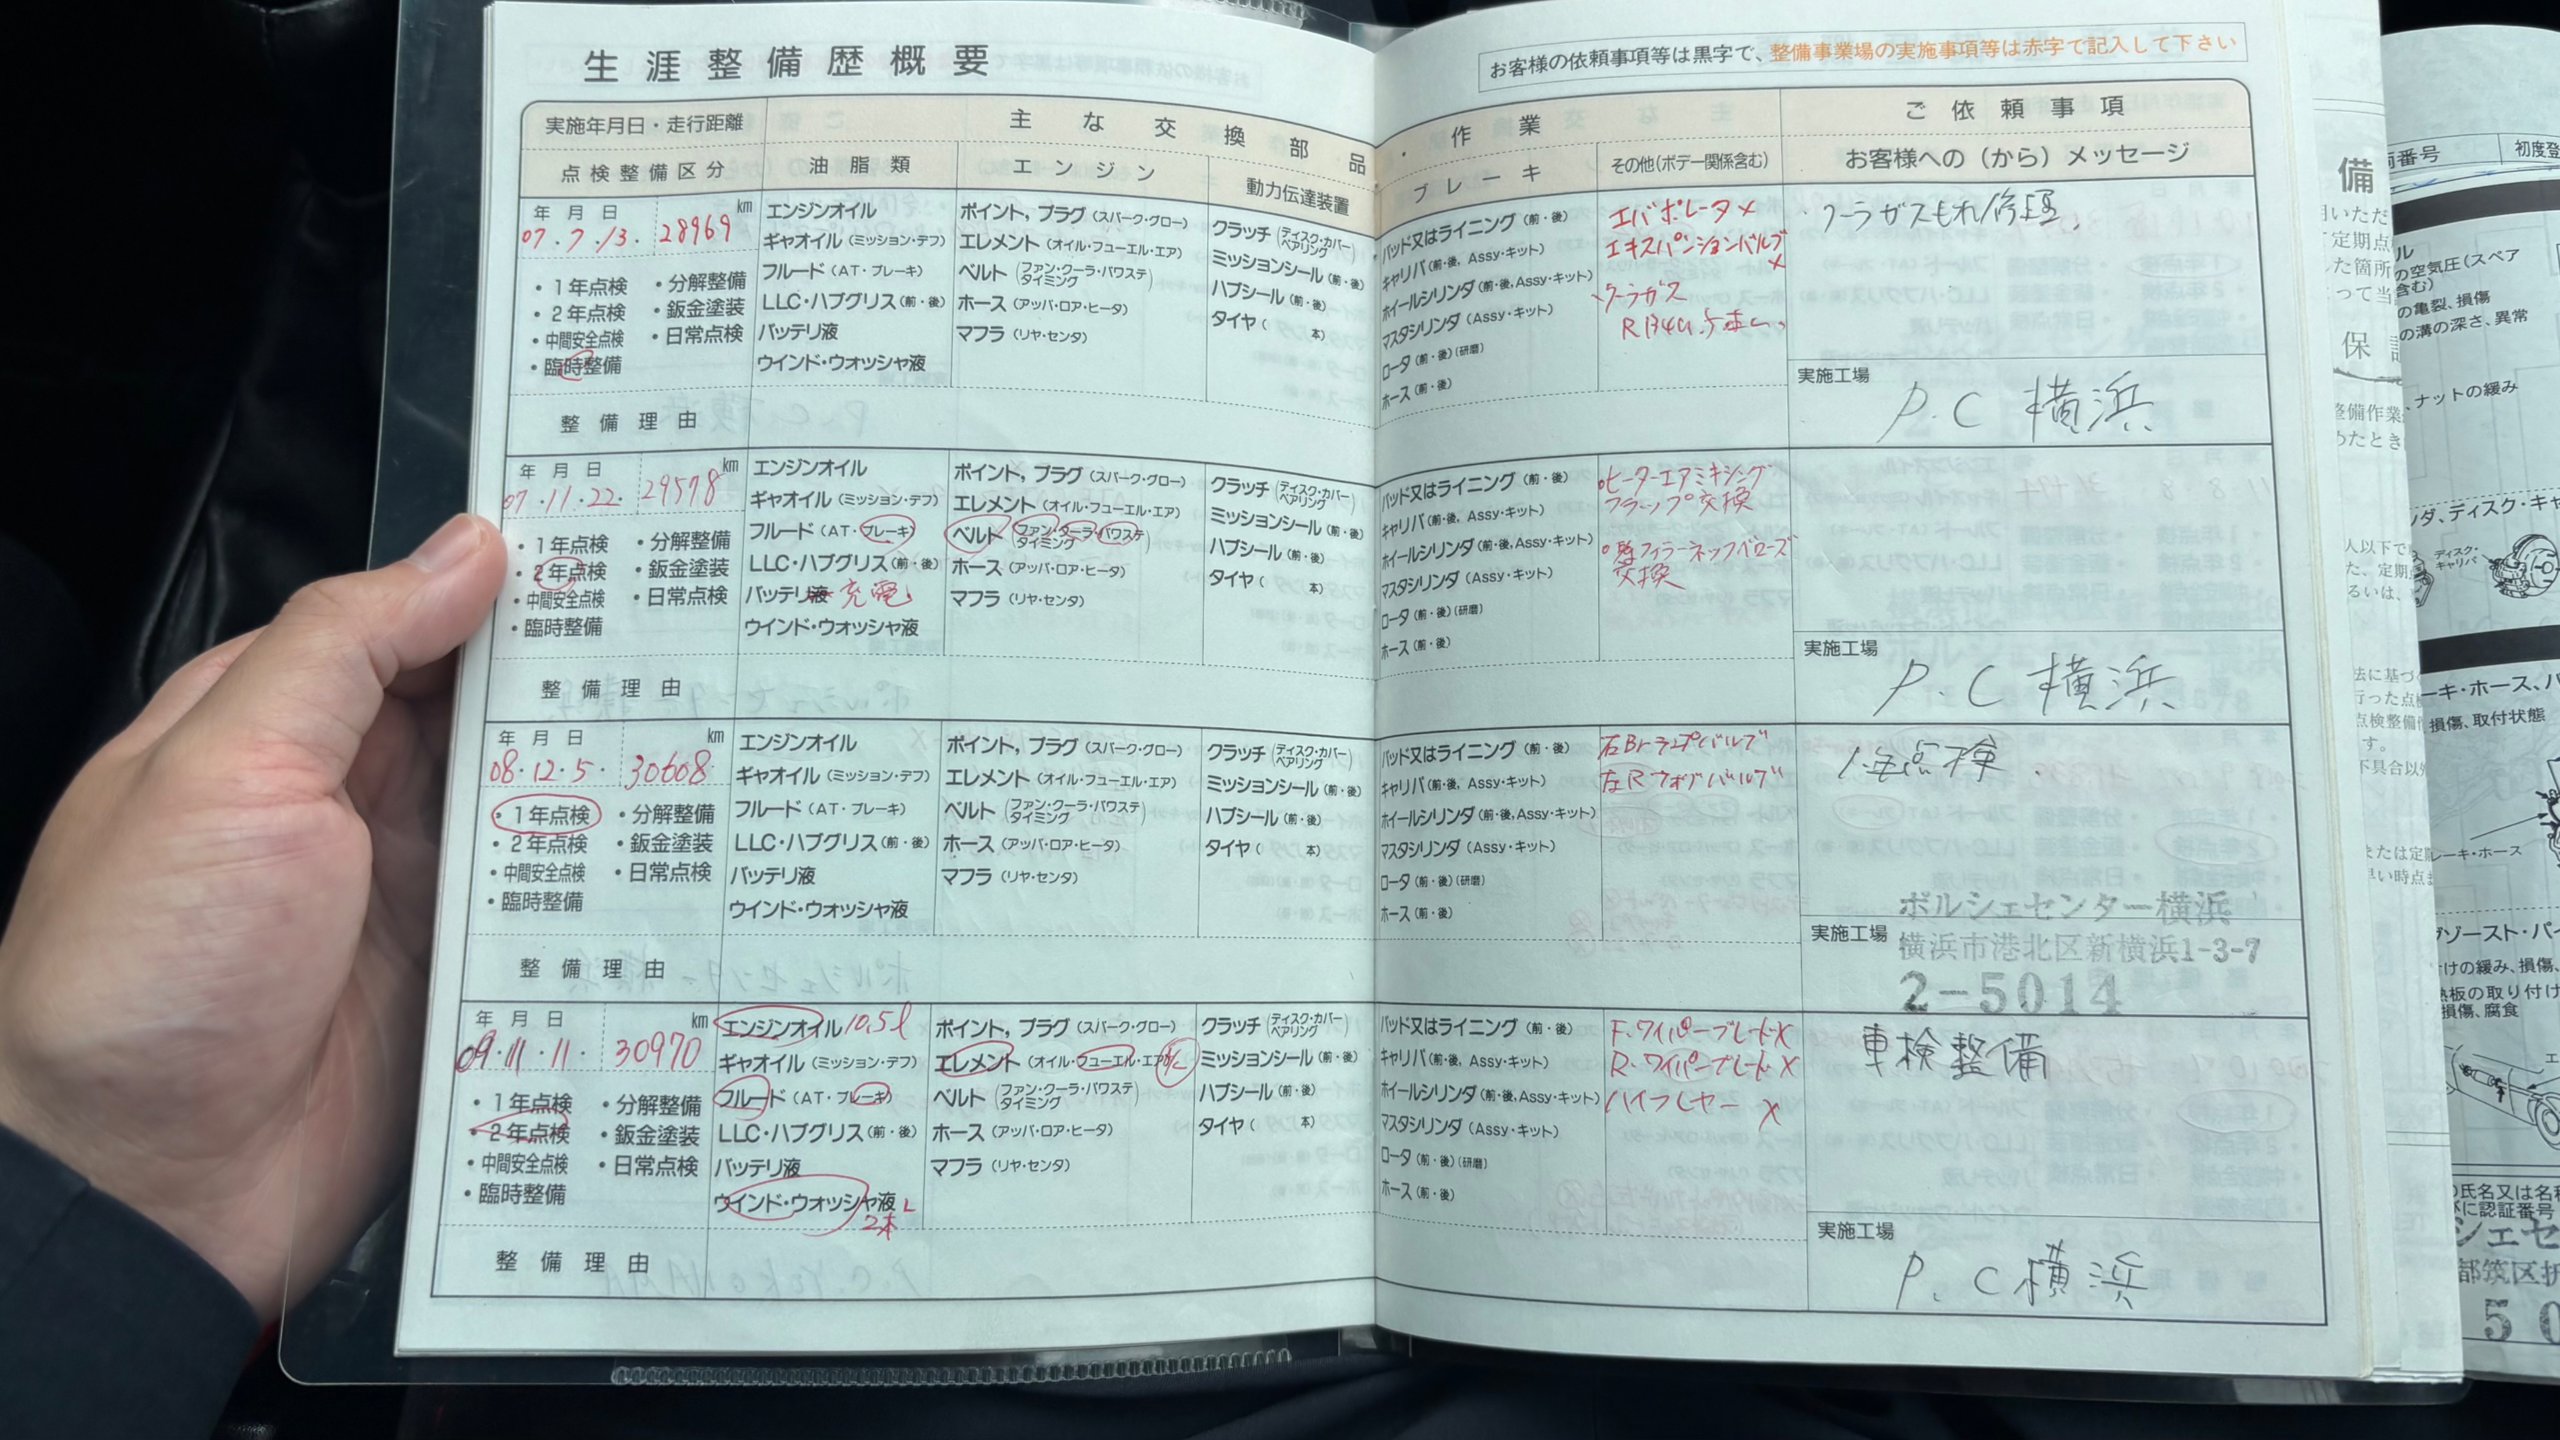 生涯整備歴概要
お客様の依頼事項等は黒字で、整備事業場の実施事項等は赤字で記入して下さい
実施年月日・走行距離
主な交換部品・作業
ご依頼事項
点検整備区分
油脂類
エンジン
動力伝達装置
ブレーキ
その他(ボデー関係含む)
お客様への(から)メッセージ
年月日 km
07.7.13. 28969
・1年点検 ・分解整備
・2年点検 ・鈑金塗装
・中間安全点検 ・日常点検
・臨時整備
整備理由
エンジンオイル
ギヤオイル(ミッション・デフ)
フルード(AT・ブレーキ)
LLC・ハブグリス(前・後)
バッテリ液
ウインド・ウォッシャ液
ポイント, プラグ(スパーク・グロー)
エレメント(オイル・フューエル・エア)
ベルト(ファン・クーラ・パワステ タイミング)
ホース(アッパ・ロア・ヒータ)
マフラ(リヤ・センタ)
クラッチ(ディスク・カバー ベアリング)
ミッションシール(前・後)
ハブシール(前・後)
タイヤ( 本)
パッド又はライニング(前・後)
キャリパ(前・後, Assy・キット)
ホイールシリンダ(前・後,Assy・キット)
マスタシリンダ(Assy・キット)
ロータ(前・後)(研磨)
ホース(前・後)
エバポレータ×
エキスパンションバルブ
×
クーラガス
クーラガスもれ修理
実施工場
P.C 横浜
年月日 km
07.11.22. 29578
・1年点検 ・分解整備
・2年点検 ・鈑金塗装
・中間安全点検 ・日常点検
・臨時整備
整備理由
エンジンオイル
ギヤオイル(ミッション・デフ)
フルード(AT・ブレーキ)
LLC・ハブグリス(前・後)
バッテリ液 充電
ウインド・ウォッシャ液
ポイント, プラグ(スパーク・グロー)
エレメント(オイル・フューエル・エア)
ベルト(ファン・クーラ・パワステ タイミング)
ホース(アッパ・ロア・ヒータ)
マフラ(リヤ・センタ)
クラッチ(ディスク・カバー ベアリング)
ミッションシール(前・後)
ハブシール(前・後)
タイヤ( 本)
パッド又はライニング(前・後)
キャリパ(前・後, Assy・キット)
ホイールシリンダ(前・後,Assy・キット)
マスタシリンダ(Assy・キット)
ロータ(前・後)(研磨)
ホース(前・後)
ヒーターエアミキシング
フラップ交換
フィラーネックベローズ
交換
実施工場
P.C 横浜
年月日 km
08.12.5. 30608
・1年点検 ・分解整備
・2年点検 ・鈑金塗装
・中間安全点検 ・日常点検
・臨時整備
整備理由
エンジンオイル
ギヤオイル(ミッション・デフ)
フルード(AT・ブレーキ)
LLC・ハブグリス(前・後)
バッテリ液
ウインド・ウォッシャ液
ポイント, プラグ(スパーク・グロー)
エレメント(オイル・フューエル・エア)
ベルト(ファン・クーラ・パワステ タイミング)
ホース(アッパ・ロア・ヒータ)
マフラ(リヤ・センタ)
クラッチ(ディスク・カバー ベアリング)
ミッションシール(前・後)
ハブシール(前・後)
タイヤ( 本)
パッド又はライニング(前・後)
キャリパ(前・後, Assy・キット)
ホイールシリンダ(前・後,Assy・キット)
マスタシリンダ(Assy・キット)
ロータ(前・後)(研磨)
ホース(前・後)
バルブ
バルブ
1年点検
実施工場
ポルシェセンター横浜
横浜市港北区新横浜1-3-7
2-5014
年月日 km
09.11.11. 30970
・1年点検 ・分解整備
・2年点検 ・鈑金塗装
・中間安全点検 ・日常点検
・臨時整備
整備理由
エンジンオイル 10.5ℓ
ギヤオイル(ミッション・デフ)
フルード(AT・ブレーキ)
LLC・ハブグリス(前・後)
バッテリ液
ウインド・ウォッシャ液
2本
ポイント, プラグ(スパーク・グロー)
エレメント(オイル・フューエル・エア)
ベルト(ファン・クーラ・パワステ タイミング)
ホース(アッパ・ロア・ヒータ)
マフラ(リヤ・センタ)
クラッチ(ディスク・カバー ベアリング)
ミッションシール(前・後)
ハブシール(前・後)
タイヤ( 本)
パッド又はライニング(前・後)
キャリパ(前・後, Assy・キット)
ホイールシリンダ(前・後,Assy・キット)
マスタシリンダ(Assy・キット)
ロータ(前・後)(研磨)
ホース(前・後)
F.ワイパーブレード×
R.ワイパーブレード×
ハイフレヤー ×
車検整備
実施工場
P.C 横浜
備
保
初度登
の空気圧(スペア
含む)
の亀裂、損傷
の溝の深さ、異常
、ナットの緩み
ディスク・キャリパ
損傷、取付状態
レーキ・ホース
けの緩み、損傷、
熱板の取り付け
損傷、腐食
の氏名又は名称
に認証番号
シェセ
都筑区折
50